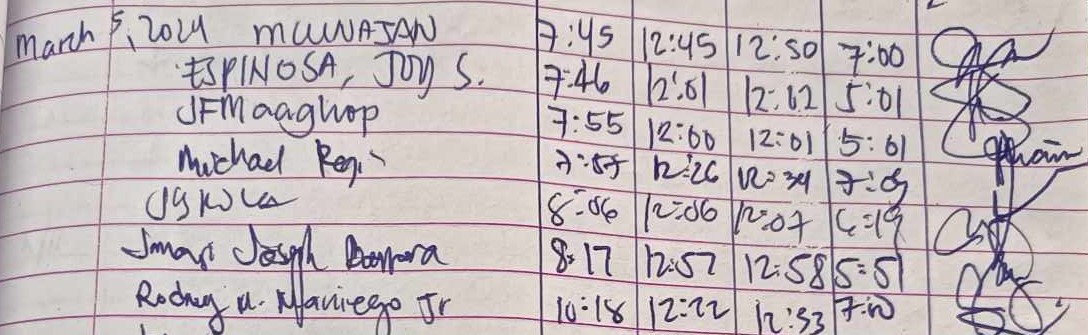 March 5, 2024 MCUNAJAN 7:45 12:45 12:50 7:00
ESPINOSA, JOY S. 7:46 12:01 12:02 5:01
JFMaaghop 7:55 12:00 12:01 5:01
Michael Regi 7:57 12:26 12:34 7:09
8:06 12:06 12:07 6:19
Joseph 8:17 12:57 12:58 5:51
Rodney M. Maniego Jr 10:18 12:22 12:53 7:10